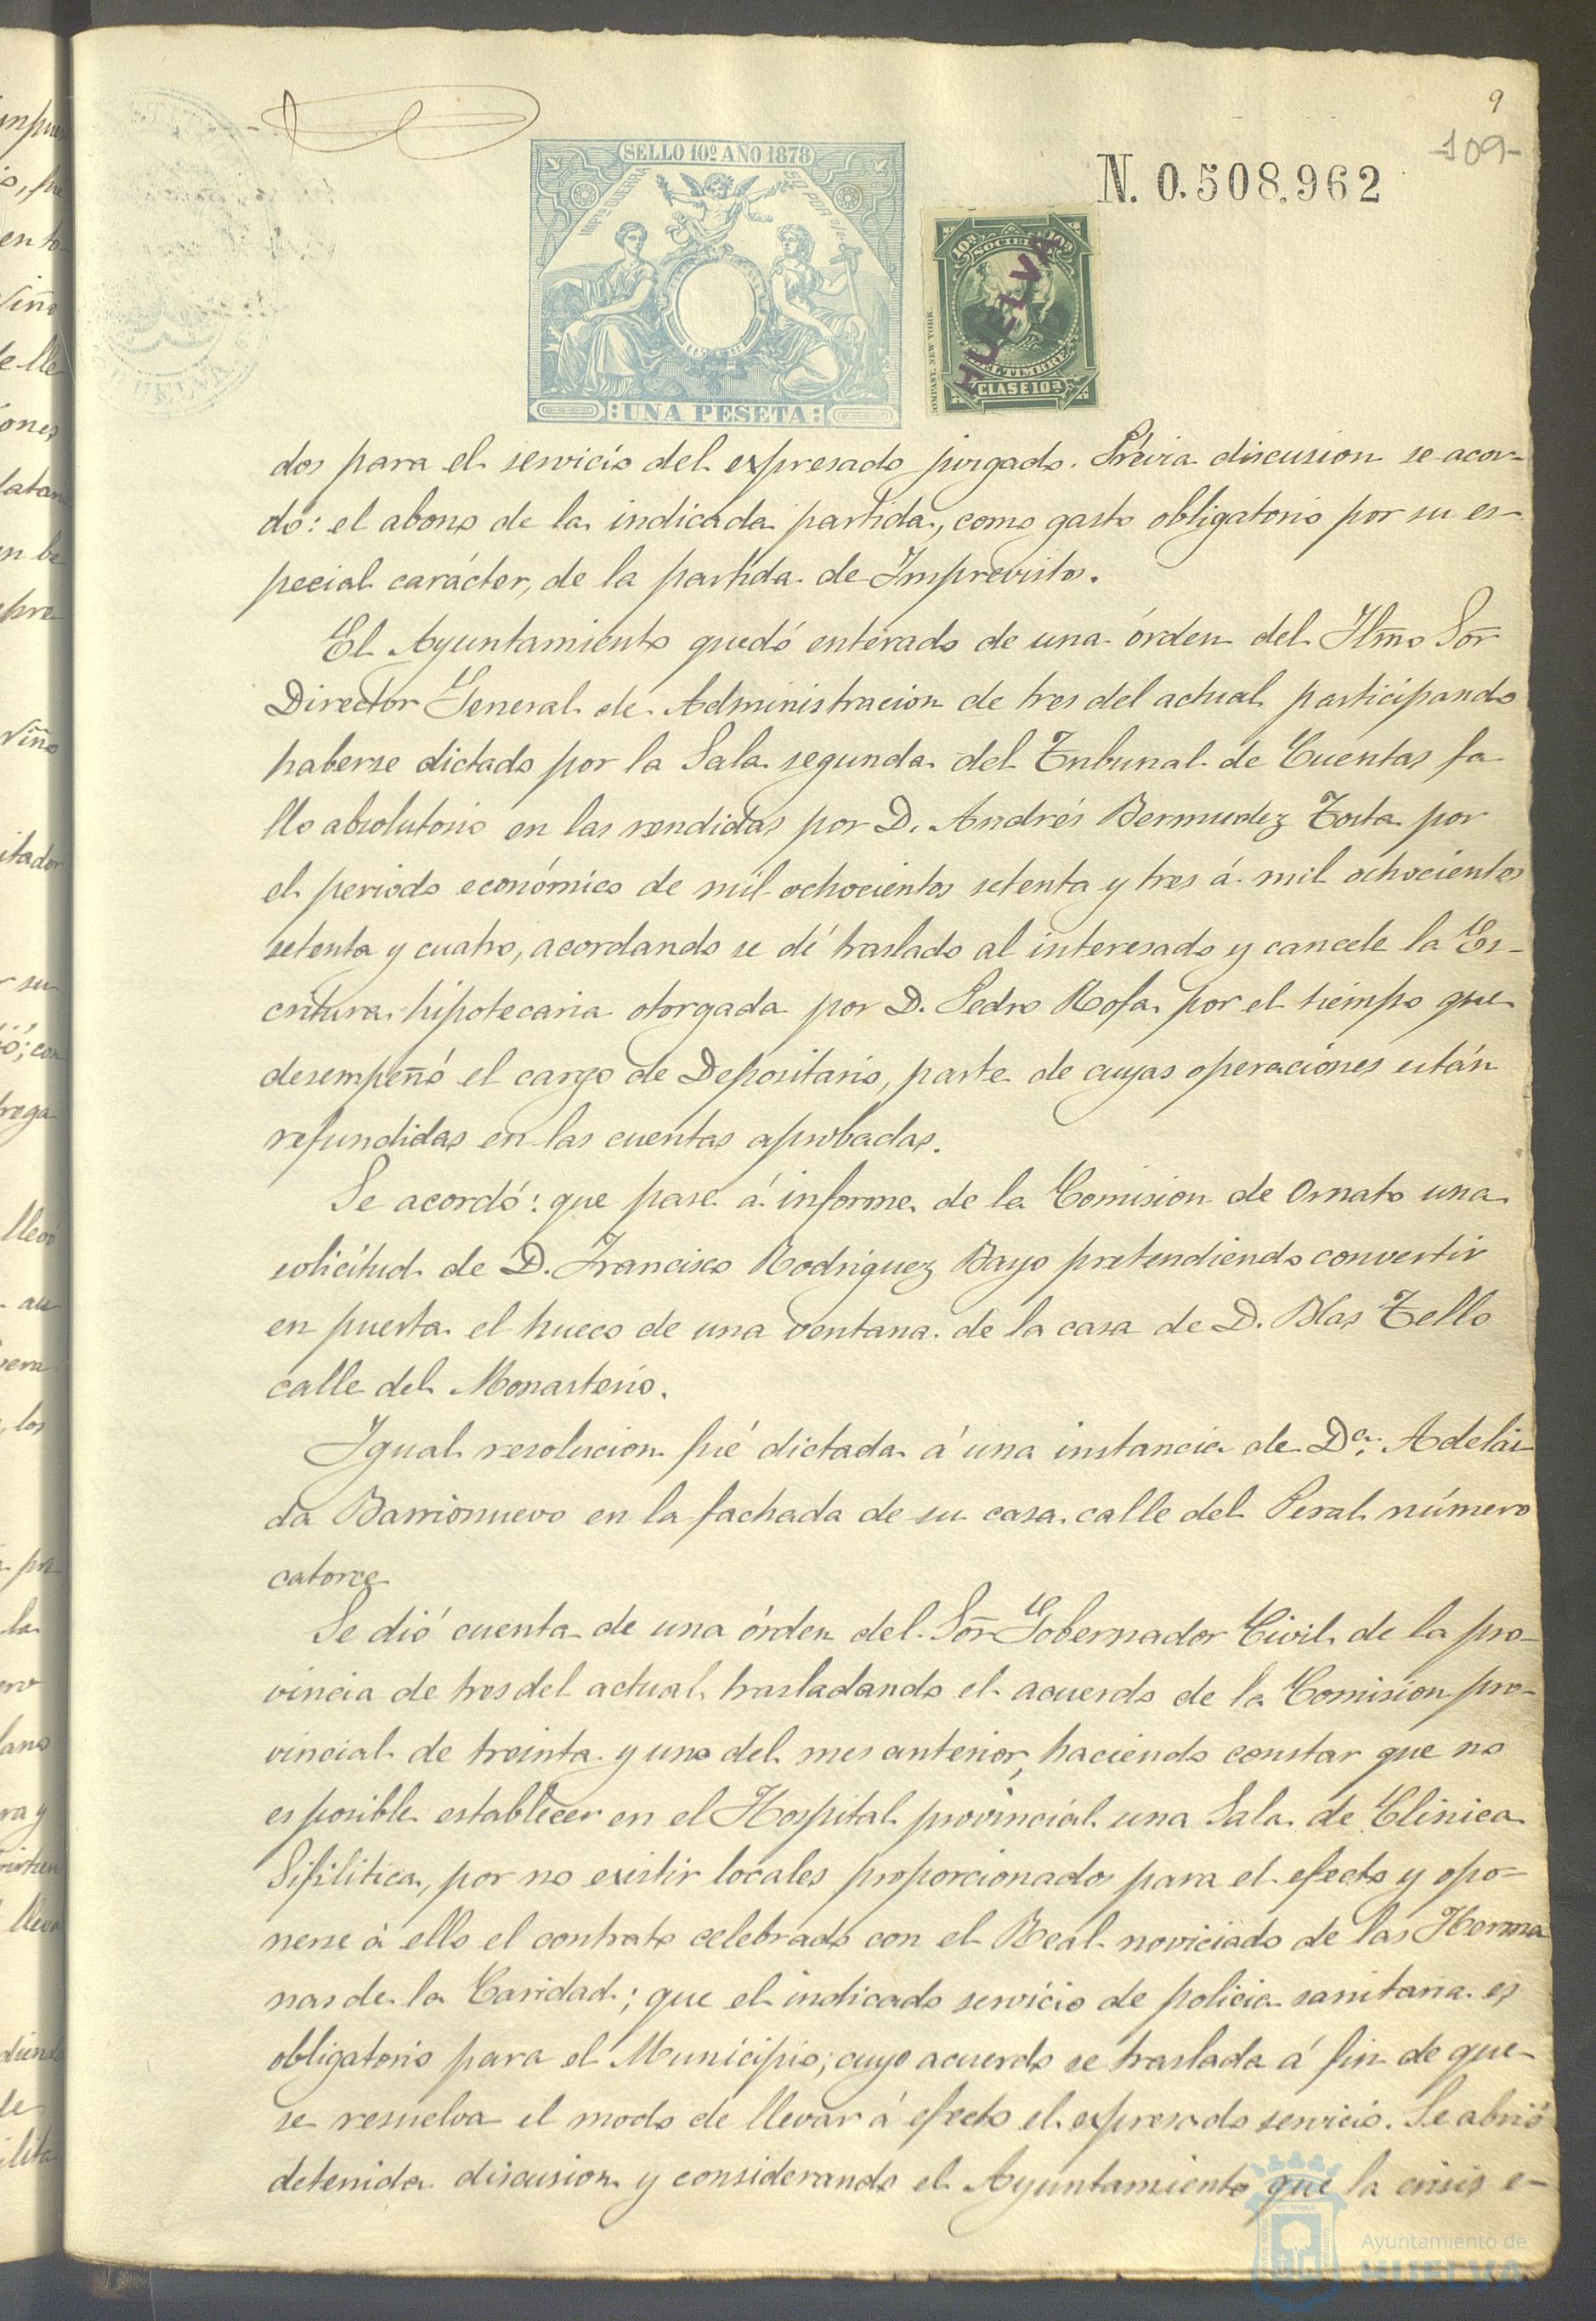 9
-109-
SELLO 10º AÑO 1878
N. 0.508.962
10ª SOCIEDAD 10ª
HUELVA
DEL TIMBRE
CLASE 10ª
COMPANY. NEW YORK.
UNA PESETA
dos para el servicio del expresado juzgado. Prévia discusion se acor-
dó: el abono de la indicada partida, como gasto obligatorio por su es-
pecial carácter, de la partida de Imprevistos.
El Ayuntamiento quedó enterado de una órden del Ilmo Sor
Director General de Administracion de tres del actual participando
haberse dictado por la Sala segunda del Tribunal de Cuentas fa
llo absolutorio en las rendidas por D. Andrés Bermudez Tosta por
el periodo económico de mil ochocientos setenta y tres á mil ochocientos
setenta y cuatro, acordando se dé traslado al interesado y cancele la Es-
critura hipotecaria otorgada por D. Pedro Rofa por el tiempo que
desempeñó el cargo de Depositario, parte de cuyas operaciones están
refundidas en las cuentas aprobadas.
Se acordó: que pase á informe de la Comision de Ornato una
solicitud de D. Francisco Rodriguez Bayo pretendiendo convertir
en puerta el hueco de una ventana de la casa de D. Blas Tello
calle del Monasterio.
Igual resolucion fué dictada á una instancia de Dª. Adelái-
da Barrionuevo en la fachada de su casa calle del Peral número
catorce
Se dió cuenta de una órden del Sor Gobernador Civil de la pro-
vincia de tres del actual trasladando el acuerdo de la Comision pro-
vincial de treinta y uno del mes anterior, haciendo constar que no
es posible establecer en el Hospital provincial una Sala de Clínica
Sifilitica, por no existir locales proporcionados para el efecto y opo-
nerse á ello el contrato celebrado con el Real noviciado de las Herma
nas de la Caridad; que el indicado servicio de policia sanitaria es
obligatorio para el Municipio; cuyo acuerdo se traslada á fin de que
se resuelva el modo de llevar á efecto el expresado servicio. Se abrió
detenida discusion y considerando el Ayuntamiento que la crisis e-
Ayuntamiento de
HUELVA